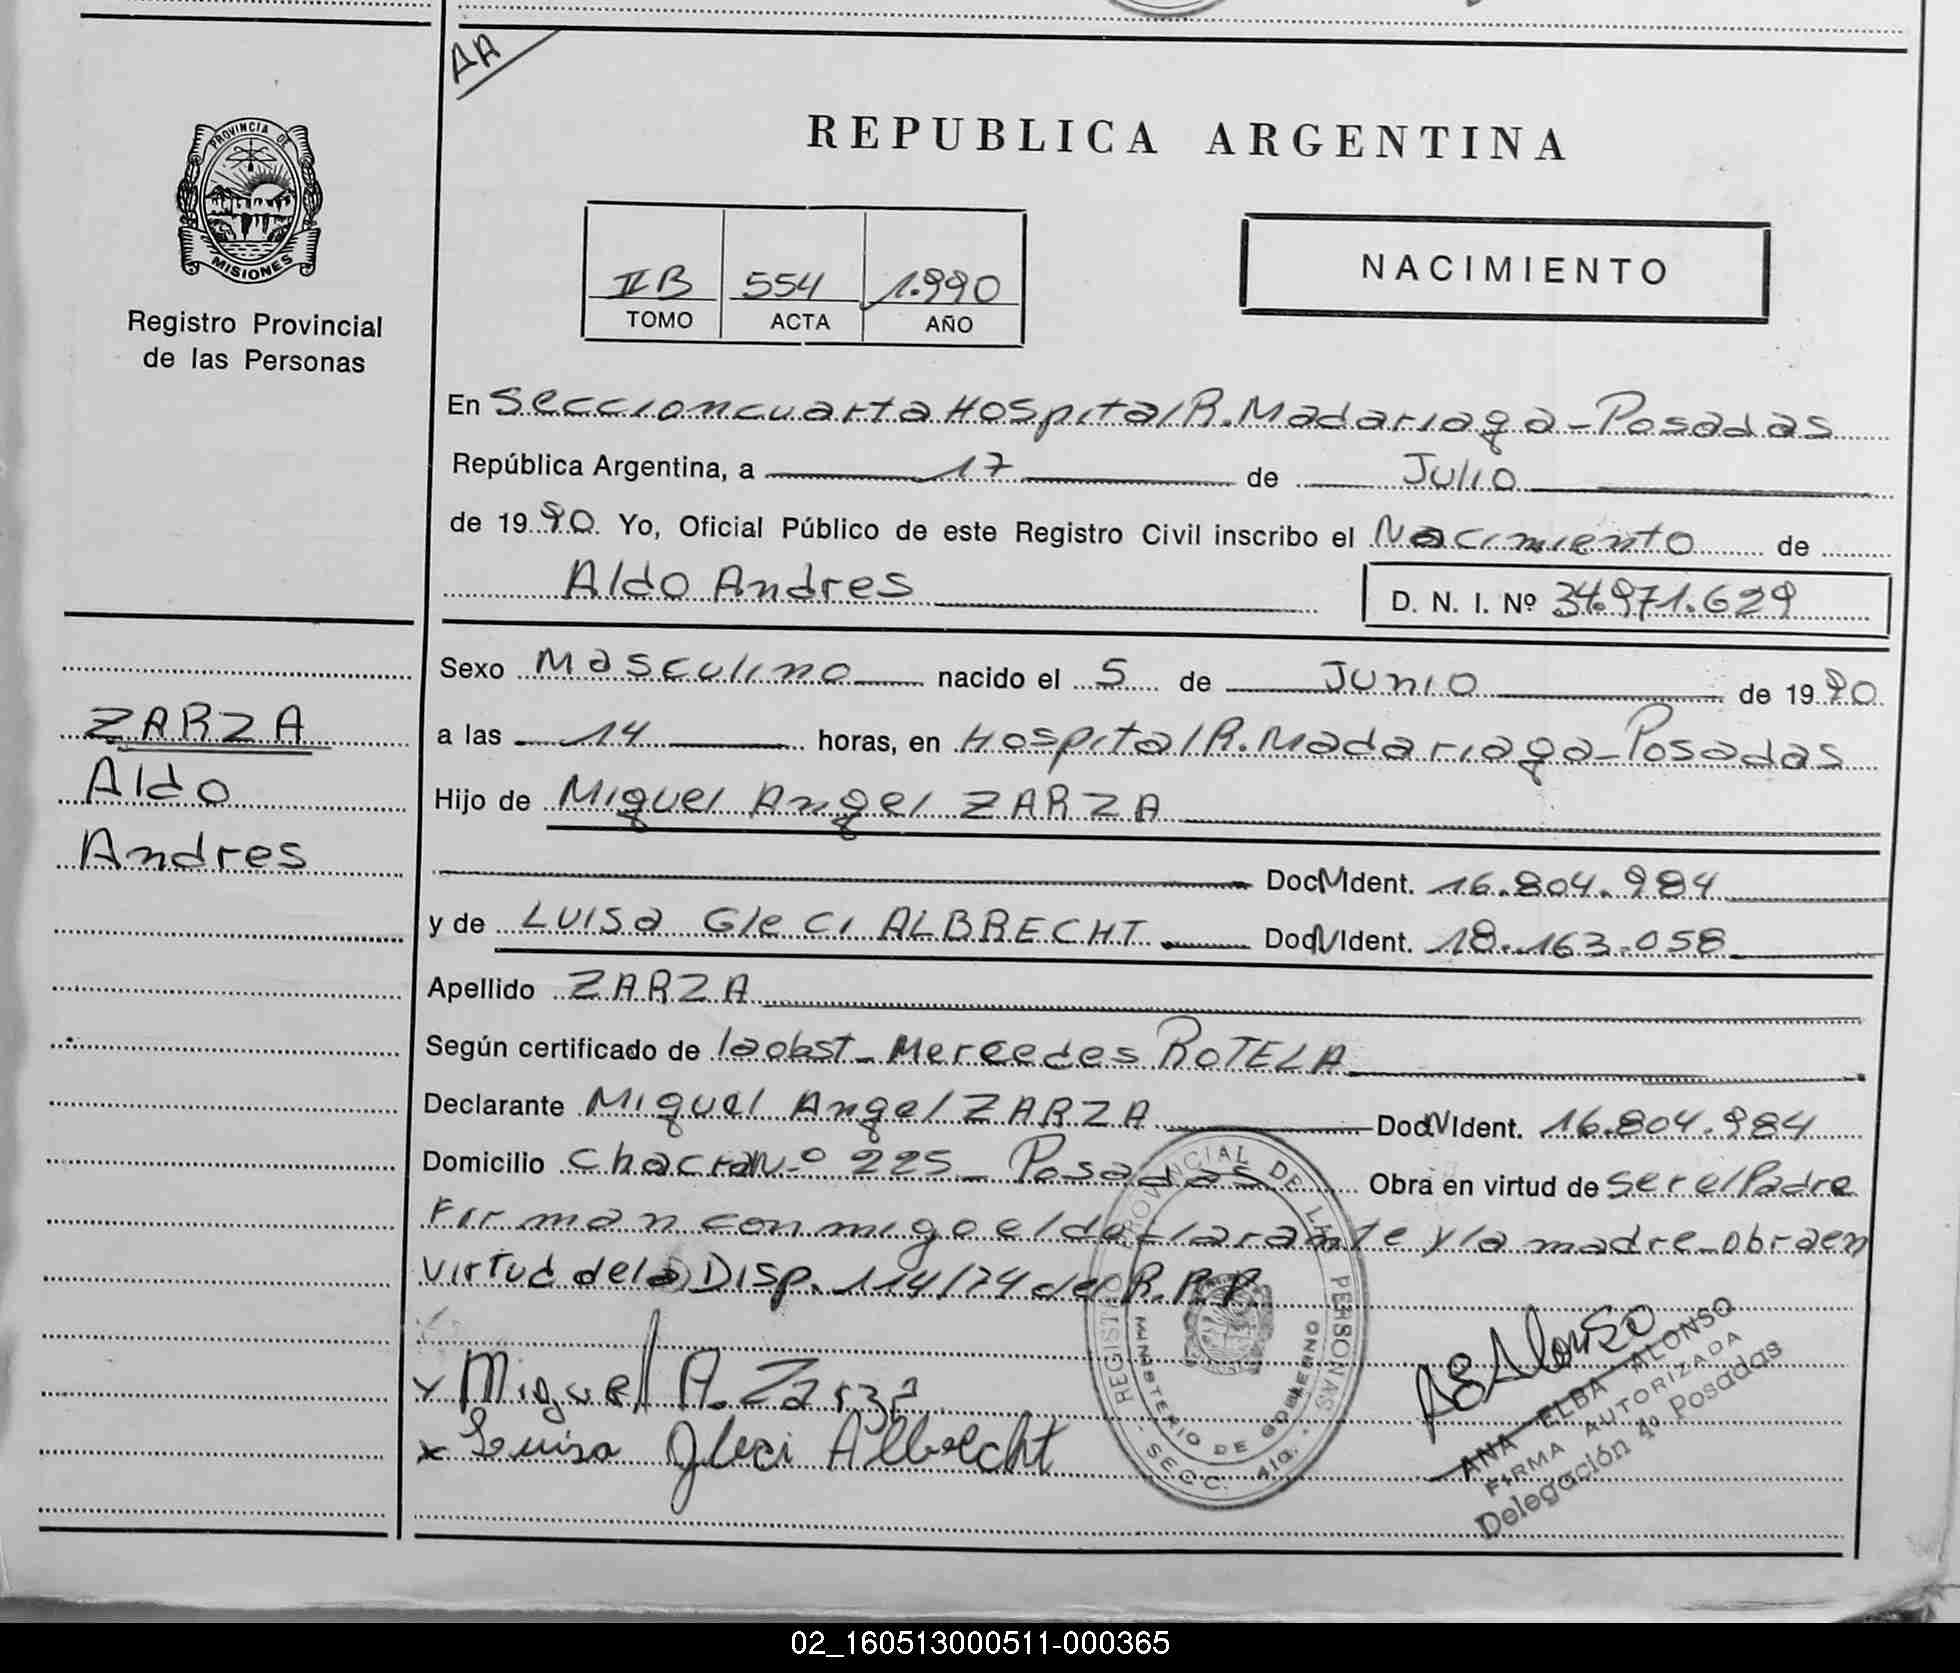 AA
PROVINCIA DE
MISIONES
Registro Provincial
de las Personas
ZARZA
Aldo
Andres
REPUBLICA ARGENTINA
II B 554 1.990
TOMO ACTA AÑO
NACIMIENTO
En Seccion cuarta Hospital R. Madariaga - Posadas
República Argentina, a 17 de Julio
de 1990. Yo, Oficial Público de este Registro Civil inscribo el Nacimiento de
Aldo Andres D. N. I. Nº 34.971.629
Sexo Masculino nacido el 5 de Junio de 1990
a las 14 horas, en Hospital R. Madariaga - Posadas
Hijo de Miguel Angel ZARZA
Doc N Ident. 16.804.984
y de Luisa Gleci ALBRECHT. Doc N Ident. 18.163.058
Apellido ZARZA
Según certificado de la obst. Mercedes ROTELA
Declarante Miguel Angel ZARZA Doc N Ident. 16.804.984
Domicilio Chacra Nº 225 - Posadas Obra en virtud de ser el Padre
Firman conmigo el declarante y la madre - obra en
virtud de la Disp. 114/74 del R.P.P.
x Miguel A. Zarza
x Luisa Gleci Albrecht
REGISTRO PROVINCIAL DE LAS PERSONAS
MINISTERIO DE GOBIERNO
SECC. 4ta.
AEAlonso
ANA ELBA ALONSO
FIRMA AUTORIZADA
Delegación 4º Posadas
02_160513000511-000365